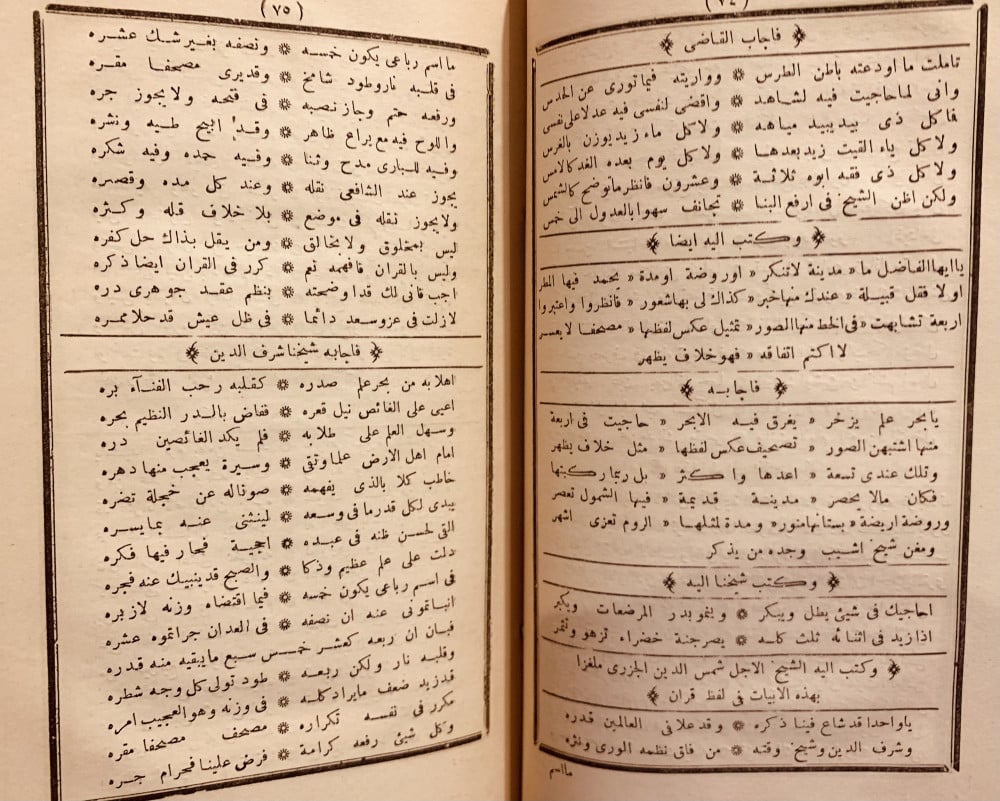 (٧٤)
﴿ فاجاب القاضى ﴾
تاملت ما اودعته باطن الطرس ۞ وواريته فيما تورى عن الحدس
وانى لما حاجيت فيه لشاهد ۞ واقضى لنفسى فيه عدلا على نفسى
فما كل ذى بيد يبيد مياهه ۞ ولا كل ماء زيد يوزن بالغرس
ولا كل ياء القيت زيد بعدها ۞ ولا كل يوم بعده الغد كالامس
ولا كل ذى فقه ابوه ثلاثة ۞ وعشرون فانظر ما توضح كالشمس
ولكن اظن الشيخ فى ارفع البنا ۞ تجانف سهوا بالعدول الى خمس
﴿ وكتب اليه ايضا ﴾
ياايها الفاضل ما « مدينة لا تنكر « او روضة او مدة « يحمد فيها
او لا فقل قبيلة « عندك منها خبر « كذاك لى بها شعور « فانظروا واعتبروا
اربعة تشابهت « فى الخط منها الصور « تمثيل عكس لفظها « مصحفا لا يعسر
لا اكتم اتفاقه « فهو خلاف يظهر
﴿ فاجابه ﴾
يا بحر علم يزخر « يغرق فيه الابحر « حاجيت فى اربعة
منها اشتبهن الصور « تصحيف عكس لفظها « مثل خلاف يظهر
وتلك عندى تسعة « اعدها واكثر « بل ربما ركبتها
فكان مالا يحصر « مدينة قديمة « فيها الشمول تعصر
وروضة اريضة « بستانها منور « ومدة لمثلها « الروم تعزى اشهر
ومغن شيخ اشيب وجده من يذكر
﴿ وكتب شيخنا اليه ﴾
احاجيك فى شيئ يطل ويبكر ۞ وينمو بدر المرضعات ويكبر
اذا زيد فى اثنائه ثلث كله ۞ يصر جنة خضراء تزهو وتثمر
﴿ وكتب اليه الشيخ الاجل شمس الدين الجزرى ملغزا
بهذه الابيات فى لفظ قران ﴾
ياواحدا قد شاع فينا ذكره ۞ وقد علا فى العالمين قدره
وشرف الدين وشيخ وقته ۞ من فاق نظمه الورى ونثره
ما اسم
(٧٥)
ما اسم رباعى يكون خمسه ۞ ونصفه بغير شك عشره
فى قلبه نار وطود شامخ ۞ وقد يرى مصحفا مقره
ورفعه حتم وجاز نصبه ۞ فى فتحه ولا يجوز جره
واللوح فيه مع يراع ظاهر ۞ وقد ابيح طيه ونشره
وفيه للبارى مدح وثنا ۞ وفيه حمده وفيه شكره
يجوز عند الشافعى نقله ۞ وعند كل مده وقصره
ولا يجوز نقله فى موضع ۞ بلا خلاف قله وكثره
ليس بمخلوق ولا بخالق ۞ ومن يقل بذاك حل كفره
وليس بالقران فافهمه نعم ۞ كرر فى القران ايضا ذكره
اجب فانى لك قد اوضحته ۞ بنظم عقد جوهرى دره
لازلت فى عز وسعد دائما ۞ فى ظل عيش قد حلا ممره
﴿ فاجابه شيخنا شرف الدين ﴾
اهلا به من بحر علم صدره ۞ كقلبه رحب الفنآء بره
اعيى على الغائص نيل قعره ۞ ففاض بالدر النظيم بحره
وسهل العلم على طلابه ۞ فلم يكد الغائصين دره
امام اهل الارض علما وتقى ۞ وسيرة يعجب منها دهره
خاطب كلا بالذى يفهمه ۞ صونا له عن خجلة تضره
يبدى لكل قدر ما فى وسعه ۞ لينثنى عنه بما يسره
القى لحسن ظنه فى عبده ۞ احجية فحار فيها فكره
دلت على علم عظيم وذكا ۞ والصبح قد ينبيك عنه فجره
فى اسم رباعى يكون خمسه ۞ فيما اقتضاه وزنه لازبره
انباتمونى عنه ان نصفه ۞ فى العد ان جراتموه عشره
فبان ان ربعه كعشر خمس سبع ما يبقيه منه قدره
وقلبه نار ولكن ربعه ۞ طود تولى كل وجه شطره
قد زيد ضعف ما يراد كله ۞ فى وزنه وهو العجيب امره
مكرر فى نفسه تكراره ۞ مصحف مصحفا مقره
وكل شيئ رفعه كرامة ۞ فرض علينا فحرام جره